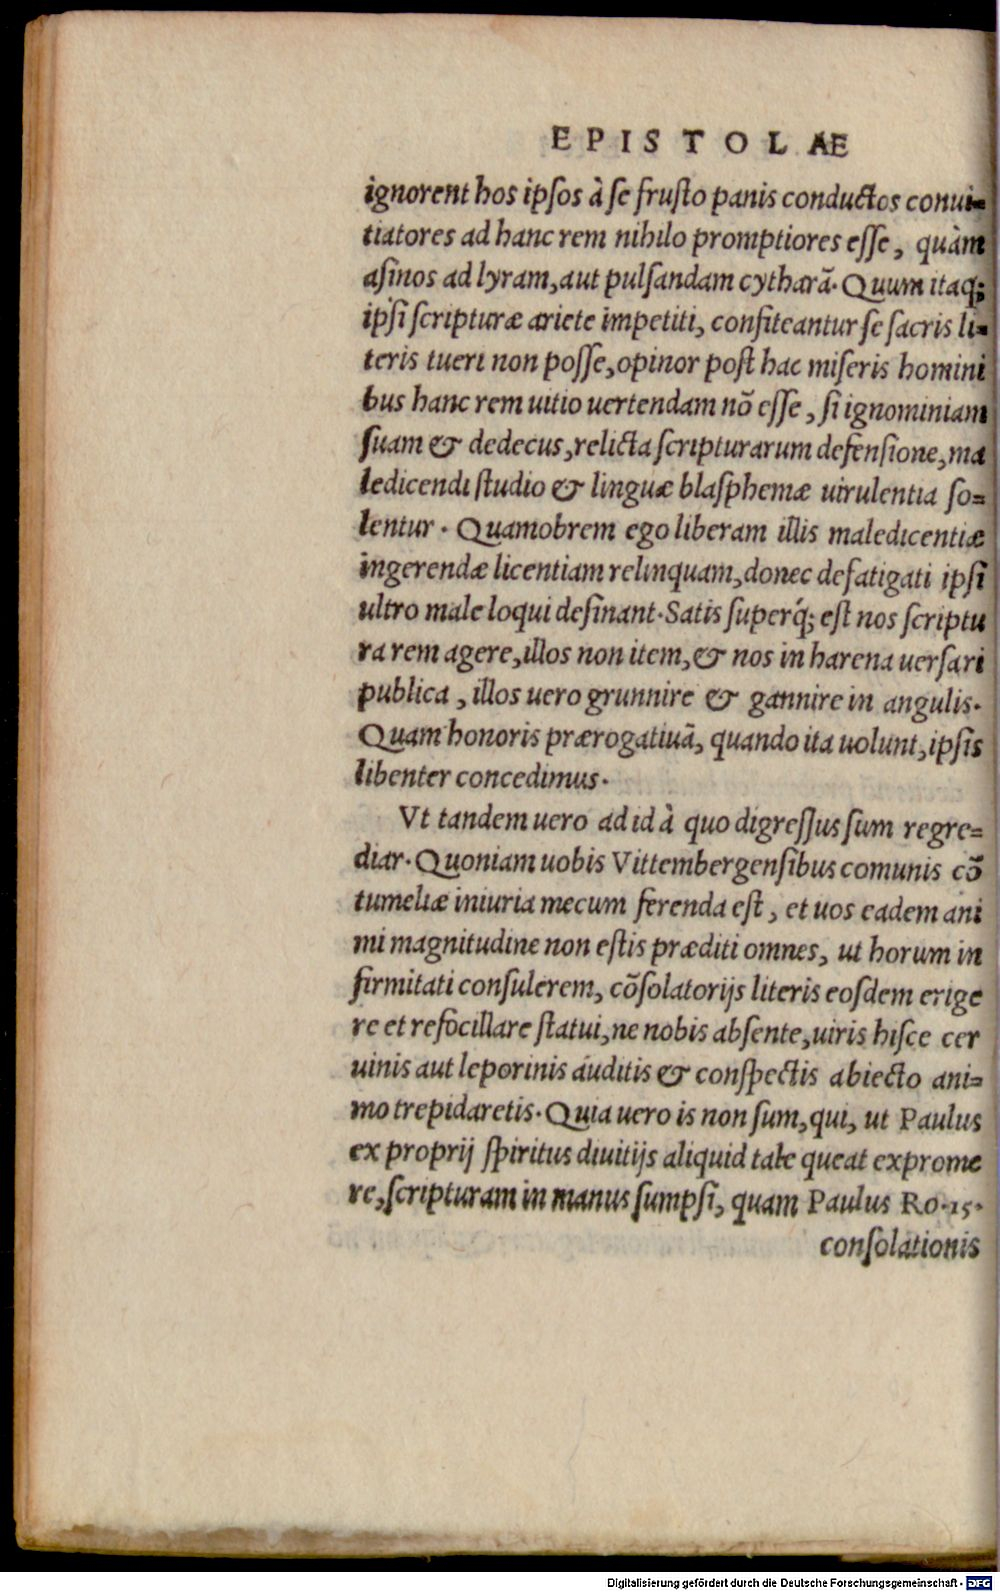 EPISTOLAE
ignorent hos ipsos à se frusto panis conductos conui-
tiatores ad hanc rem nihilo promptiores esse, quàm
asinos ad lyram, aut pulsandam cytharã. Quum itaq;
ipsi scripturæ ariete impetiti, confiteantur se sacris li-
teris tueri non posse, opinor post hac miseris homini
bus hanc rem uitio uertendam nõ esse, si ignominiam
suam & dedecus, relicta scripturarum defensione, ma
ledicendi studio & linguæ blasphemæ uirulentia so-
lentur. Quamobrem ego liberam illis maledicentiæ
ingerendæ licentiam relinquam, donec defatigati ipsi
ultro male loqui desinant. Satis superq́; est nos scriptu
ra rem agere, illos non item, & nos in harena uersari
publica, illos uero grunnire & gannire in angulis.
Quam honoris prærogatiuã, quando ita uolunt, ipsis
libenter concedimus.
Vt tandem uero ad id à quo digressus sum regre-
diar. Quoniam uobis Vittembergensibus comunis cõ
tumeliæ iniuria mecum ferenda est, et uos eadem ani
mi magnitudine non estis præditi omnes, ut horum in
firmitati consulerem, cõsolatorijs literis eosdem erige
re et refocillare statui, ne nobis absente, uiris hisce cer
uinis aut leporinis auditis & conspectis abiecto ani-
mo trepidaretis. Quia uero is non sum, qui, ut Paulus
ex proprij spiritus diuitijs aliquid tale queat exprome
re, scripturam in manus sumpsi, quam Paulus Ro. 15.
consolationis
Digitalisierung gefördert durch die Deutsche Forschungsgemeinschaft - DFG